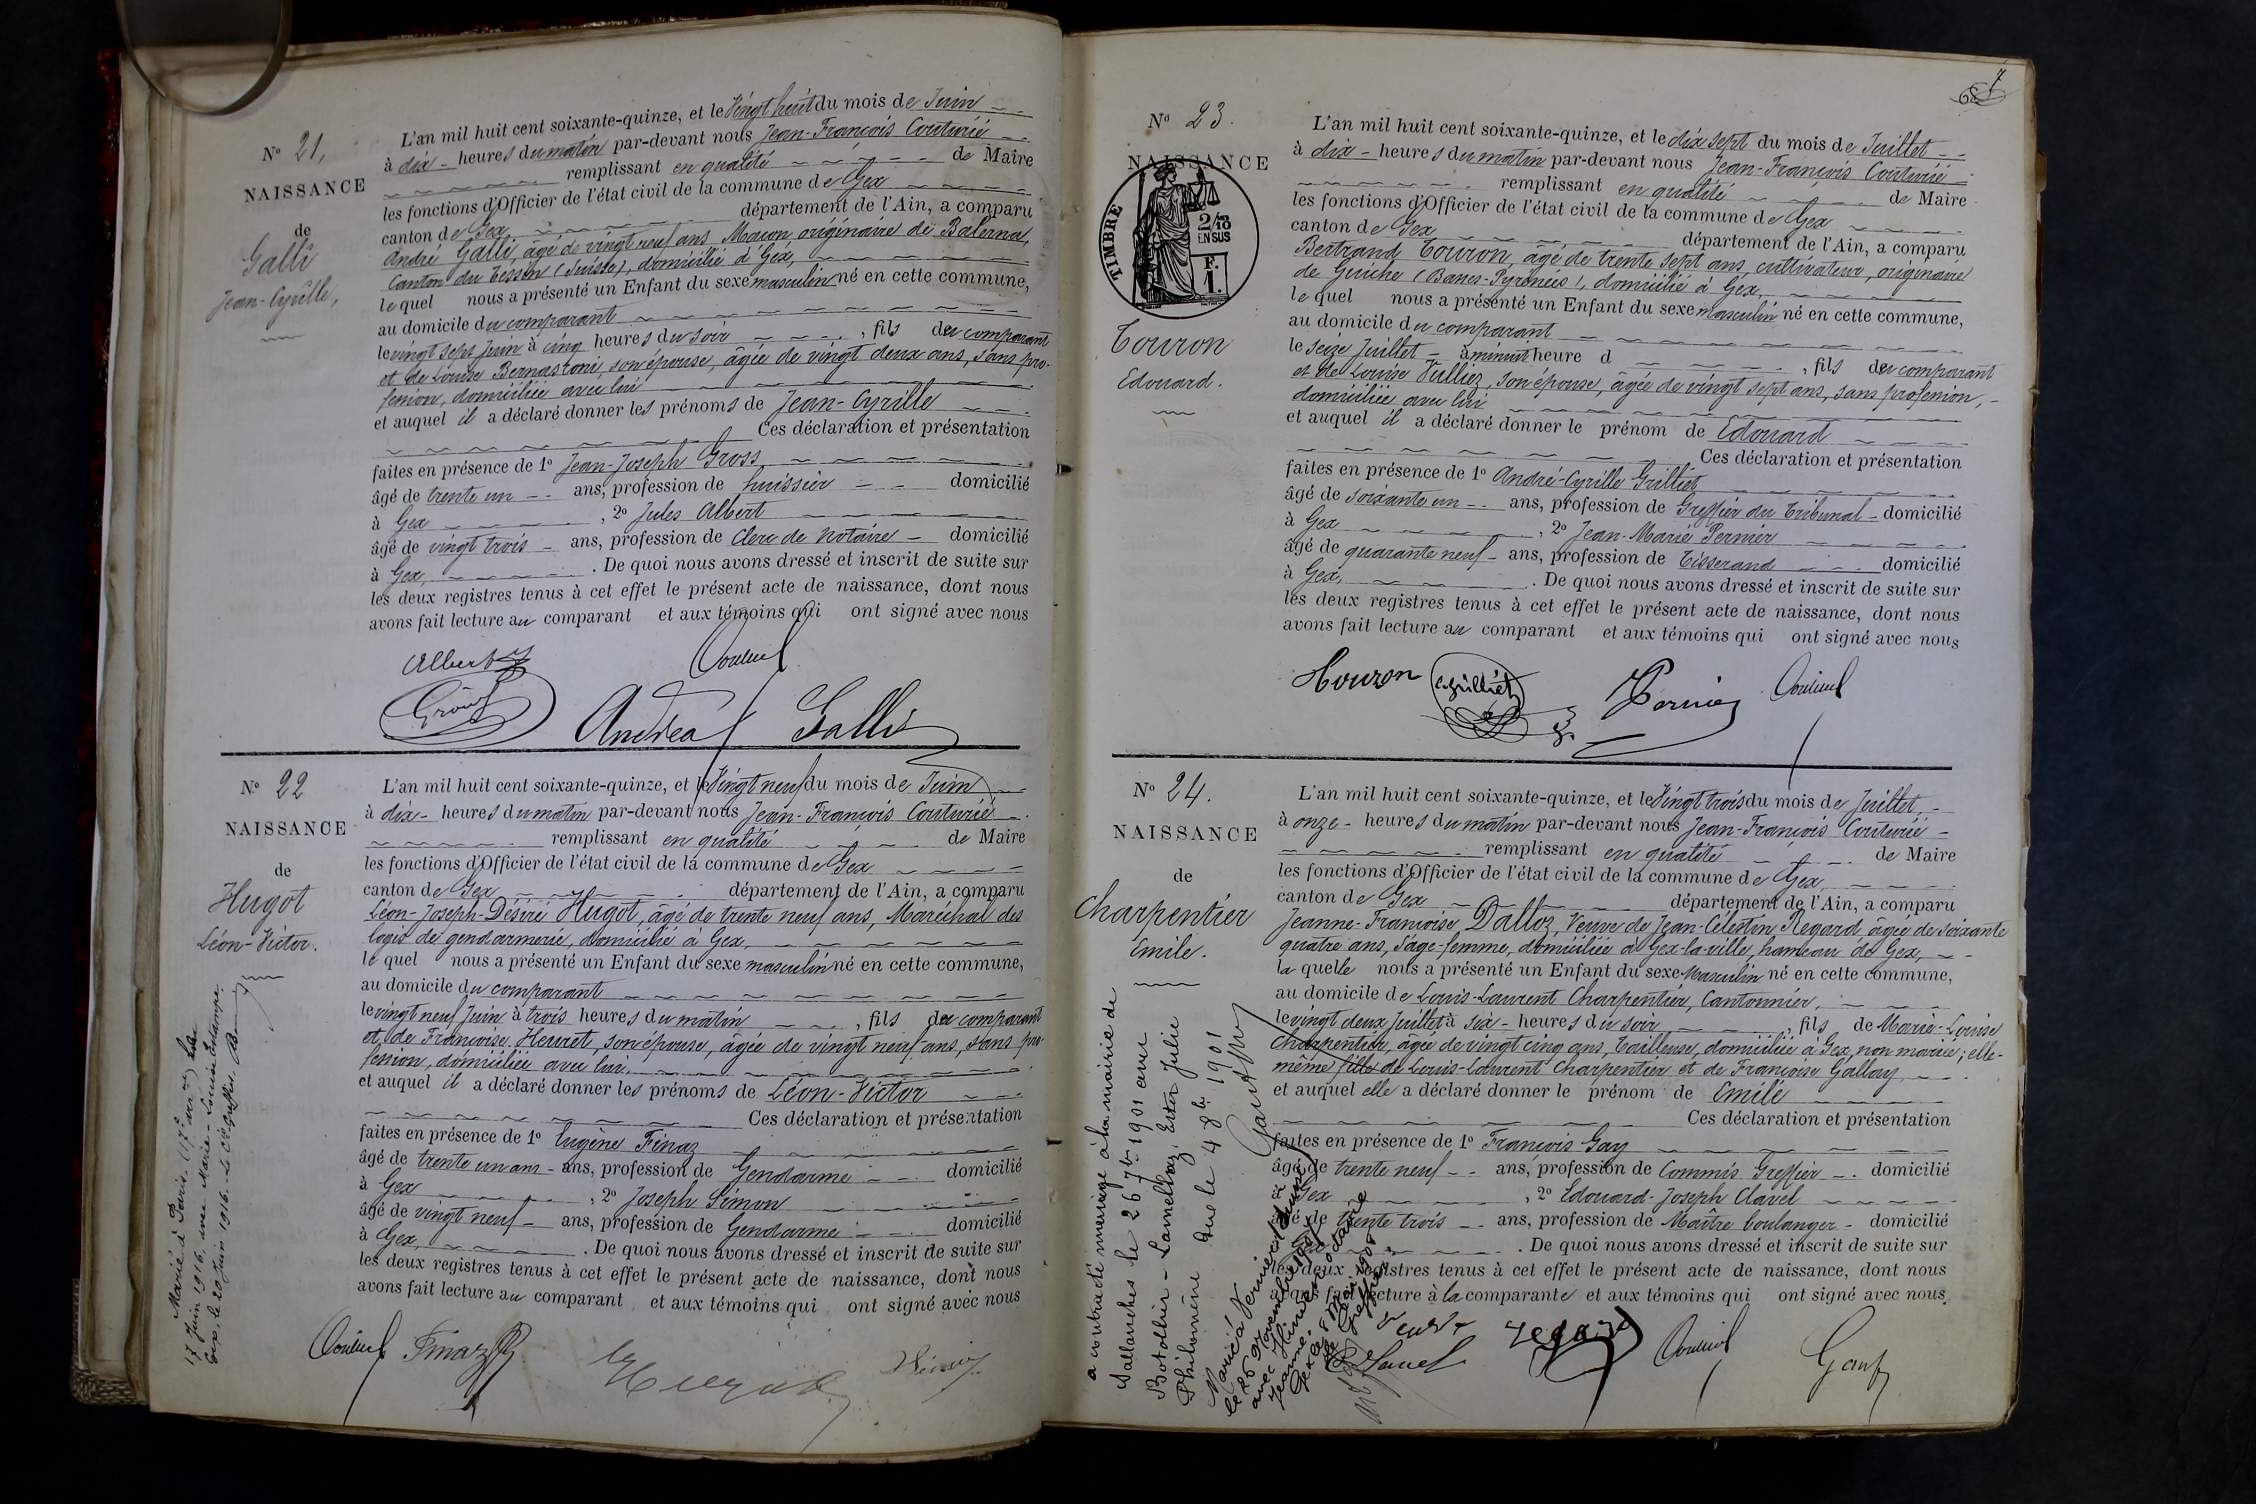 Nº 21.
NAISSANCE
de
Galli
Jean-Cyrille,
L'an mil huit cent soixante-quinze, et le Vingt huit du mois de Juin
à dix heures du matin par-devant nous Jean-François Couturié
remplissant en qualité de Maire
les fonctions d'Officier de l'état civil de la commune de Gex
canton de Gex département de l'Ain, a comparu
André Galli, âgé de vingt neuf ans, Maçon, originaire de Balerna,
Canton du Tessin (Suisse), domicilié à Gex,
lequel nous a présenté un Enfant du sexe masculin né en cette commune,
au domicile du comparant
le vingt sept Juin à cinq heures du soir, fils du comparant
et de Louise Bernasconi, son épouse, âgée de vingt deux ans, sans pro-
fession, domiciliée avec lui
et auquel il a déclaré donner les prénoms de Jean-Cyrille
Ces déclaration et présentation
faites en présence de 1º Jean-Joseph Gross
âgé de trente un ans, profession de huissier domicilié
à Gex, 2º Jules Albert
âgé de vingt trois ans, profession de Clerc de Notaire domicilié
à Gex, . De quoi nous avons dressé et inscrit de suite sur
les deux registres tenus à cet effet le présent acte de naissance, dont nous
avons fait lecture au comparant et aux témoins qui ont signé avec nous
Albert
Gross
Andrea Galli
Nº 22
NAISSANCE
de
Hugot
Léon-Victor.
L'an mil huit cent soixante-quinze, et le Vingt neuf du mois de Juin
à dix heures du matin par-devant nous Jean-François Couturié
remplissant en qualité de Maire
les fonctions d'Officier de l'état civil de la commune de Gex
canton de Gex département de l'Ain, a comparu
Léon-Joseph-Désiré Hugot, âgé de trente neuf ans, Maréchal des
logis de gendarmerie, domicilié à Gex,
lequel nous a présenté un Enfant du sexe masculin né en cette commune,
au domicile du comparant
le vingt neuf Juin à trois heures du matin, fils du comparant
et de Françoise, son épouse, âgée de vingt neuf ans, sans pro-
fession, domiciliée avec lui,
et auquel il a déclaré donner les prénoms de Léon-Victor
Ces déclaration et présentation
faites en présence de 1º Eugène Finaz
âgé de trente un ans ans, profession de Gendarme domicilié
à Gex, 2º Joseph Simon
âgé de vingt neuf ans, profession de Gendarme domicilié
à Gex, . De quoi nous avons dressé et inscrit de suite sur
les deux registres tenus à cet effet le présent acte de naissance, dont nous
avons fait lecture au comparant et aux témoins qui ont signé avec nous
Marié à Paris (17e arr.) le
17 Juin 1916, avec Marie-Louise
Gex, le 20 Juin 1916. Le Greffier
Finaz
Nº 23.
NAISSANCE
TIMBRE
2/10
EN SUS
F.
1.
Touron
Edouard.
L'an mil huit cent soixante-quinze, et le dix sept du mois de Juillet
à dix heures du matin par-devant nous Jean-François Couturié
remplissant en qualité de Maire
les fonctions d'Officier de l'état civil de la commune de Gex
canton de Gex département de l'Ain, a comparu
Bertrand Touron, âgé de trente sept ans, cultivateur, originaire
de Guiche (Basses-Pyrénées), domicilié à Gex,
lequel nous a présenté un Enfant du sexe masculin né en cette commune,
au domicile du comparant
le seize Juillet à minuit heure d, fils du comparant
et de Louise Vulliez, son épouse, âgée de vingt sept ans, sans profession,
domiciliée avec lui
et auquel il a déclaré donner le prénom de Edouard
Ces déclaration et présentation
faites en présence de 1º André-Cyrille Grilliet
âgé de soixante un ans, profession de Greffier du Tribunal domicilié
à Gex, 2º Jean-Marie Pernier
âgé de quarante neuf ans, profession de Tisserand domicilié
à Gex, . De quoi nous avons dressé et inscrit de suite sur
les deux registres tenus à cet effet le présent acte de naissance, dont nous
avons fait lecture au comparant et aux témoins qui ont signé avec nous
Touron Grilliet Pernier
Nº 24.
NAISSANCE
de
Charpentier
Emile.
L'an mil huit cent soixante-quinze, et le Vingt trois du mois de Juillet
à onze heures du matin par-devant nous Jean-François Couturié
remplissant en qualité de Maire
les fonctions d'Officier de l'état civil de la commune de Gex,
canton de Gex département de l'Ain, a comparu
Jeanne-Françoise Dalloz, Veuve de Jean-Célestin Regard âgée de soixante
quatre ans, Sage-femme, domiciliée à Gex-la-ville, hameau de Gex,
laquelle nous a présenté un Enfant du sexe Masculin né en cette commune,
au domicile de Louis-Laurent Charpentier, Cantonnier,
le vingt deux Juillet à six heures du soir, fils de Marie-Louise
Charpentier, âgée de vingt cinq ans, Tailleuse, domiciliée à Gex, non mariée; elle-
même fille de Louis-Laurent Charpentier et de Françoise Gallay
et auquel elle a déclaré donner le prénom de Emile
Ces déclaration et présentation
faites en présence de 1º François Gay
âgé de trente neuf ans, profession de Commis Greffier domicilié
Gex, 2º Edouard-Joseph Clavel
âgé de trente trois ans, profession de Maître boulanger domicilié
. De quoi nous avons dressé et inscrit de suite sur
les deux registres tenus à cet effet le présent acte de naissance, dont nous
avons fait lecture à la comparante et aux témoins qui ont signé avec nous
a contracté mariage à la mairie de
Sallanches le 26 7bre 1901 avec
Botollier-Lamellaz, Ester Julie
Philomène Gex le 4 8bre 1901
Marié à
le 26 Novembre
avec
Jeanne
Gex le 8 Mai 1908
Veuve Regard
Clavel